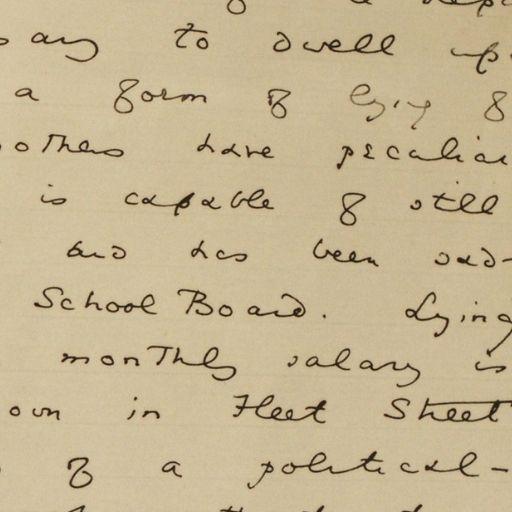 to dwell
a form of lying of
others have peculiar
is capable of still
and has been sad-
School Board. Lying
monthly salary is
own in Fleet Street
of a political-